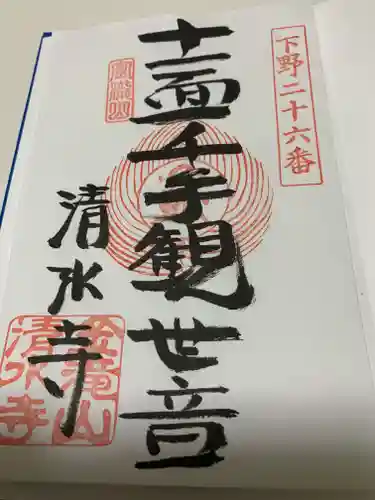 下野二十六番
十一面千手観世音
清水寺
金滝山
清水寺